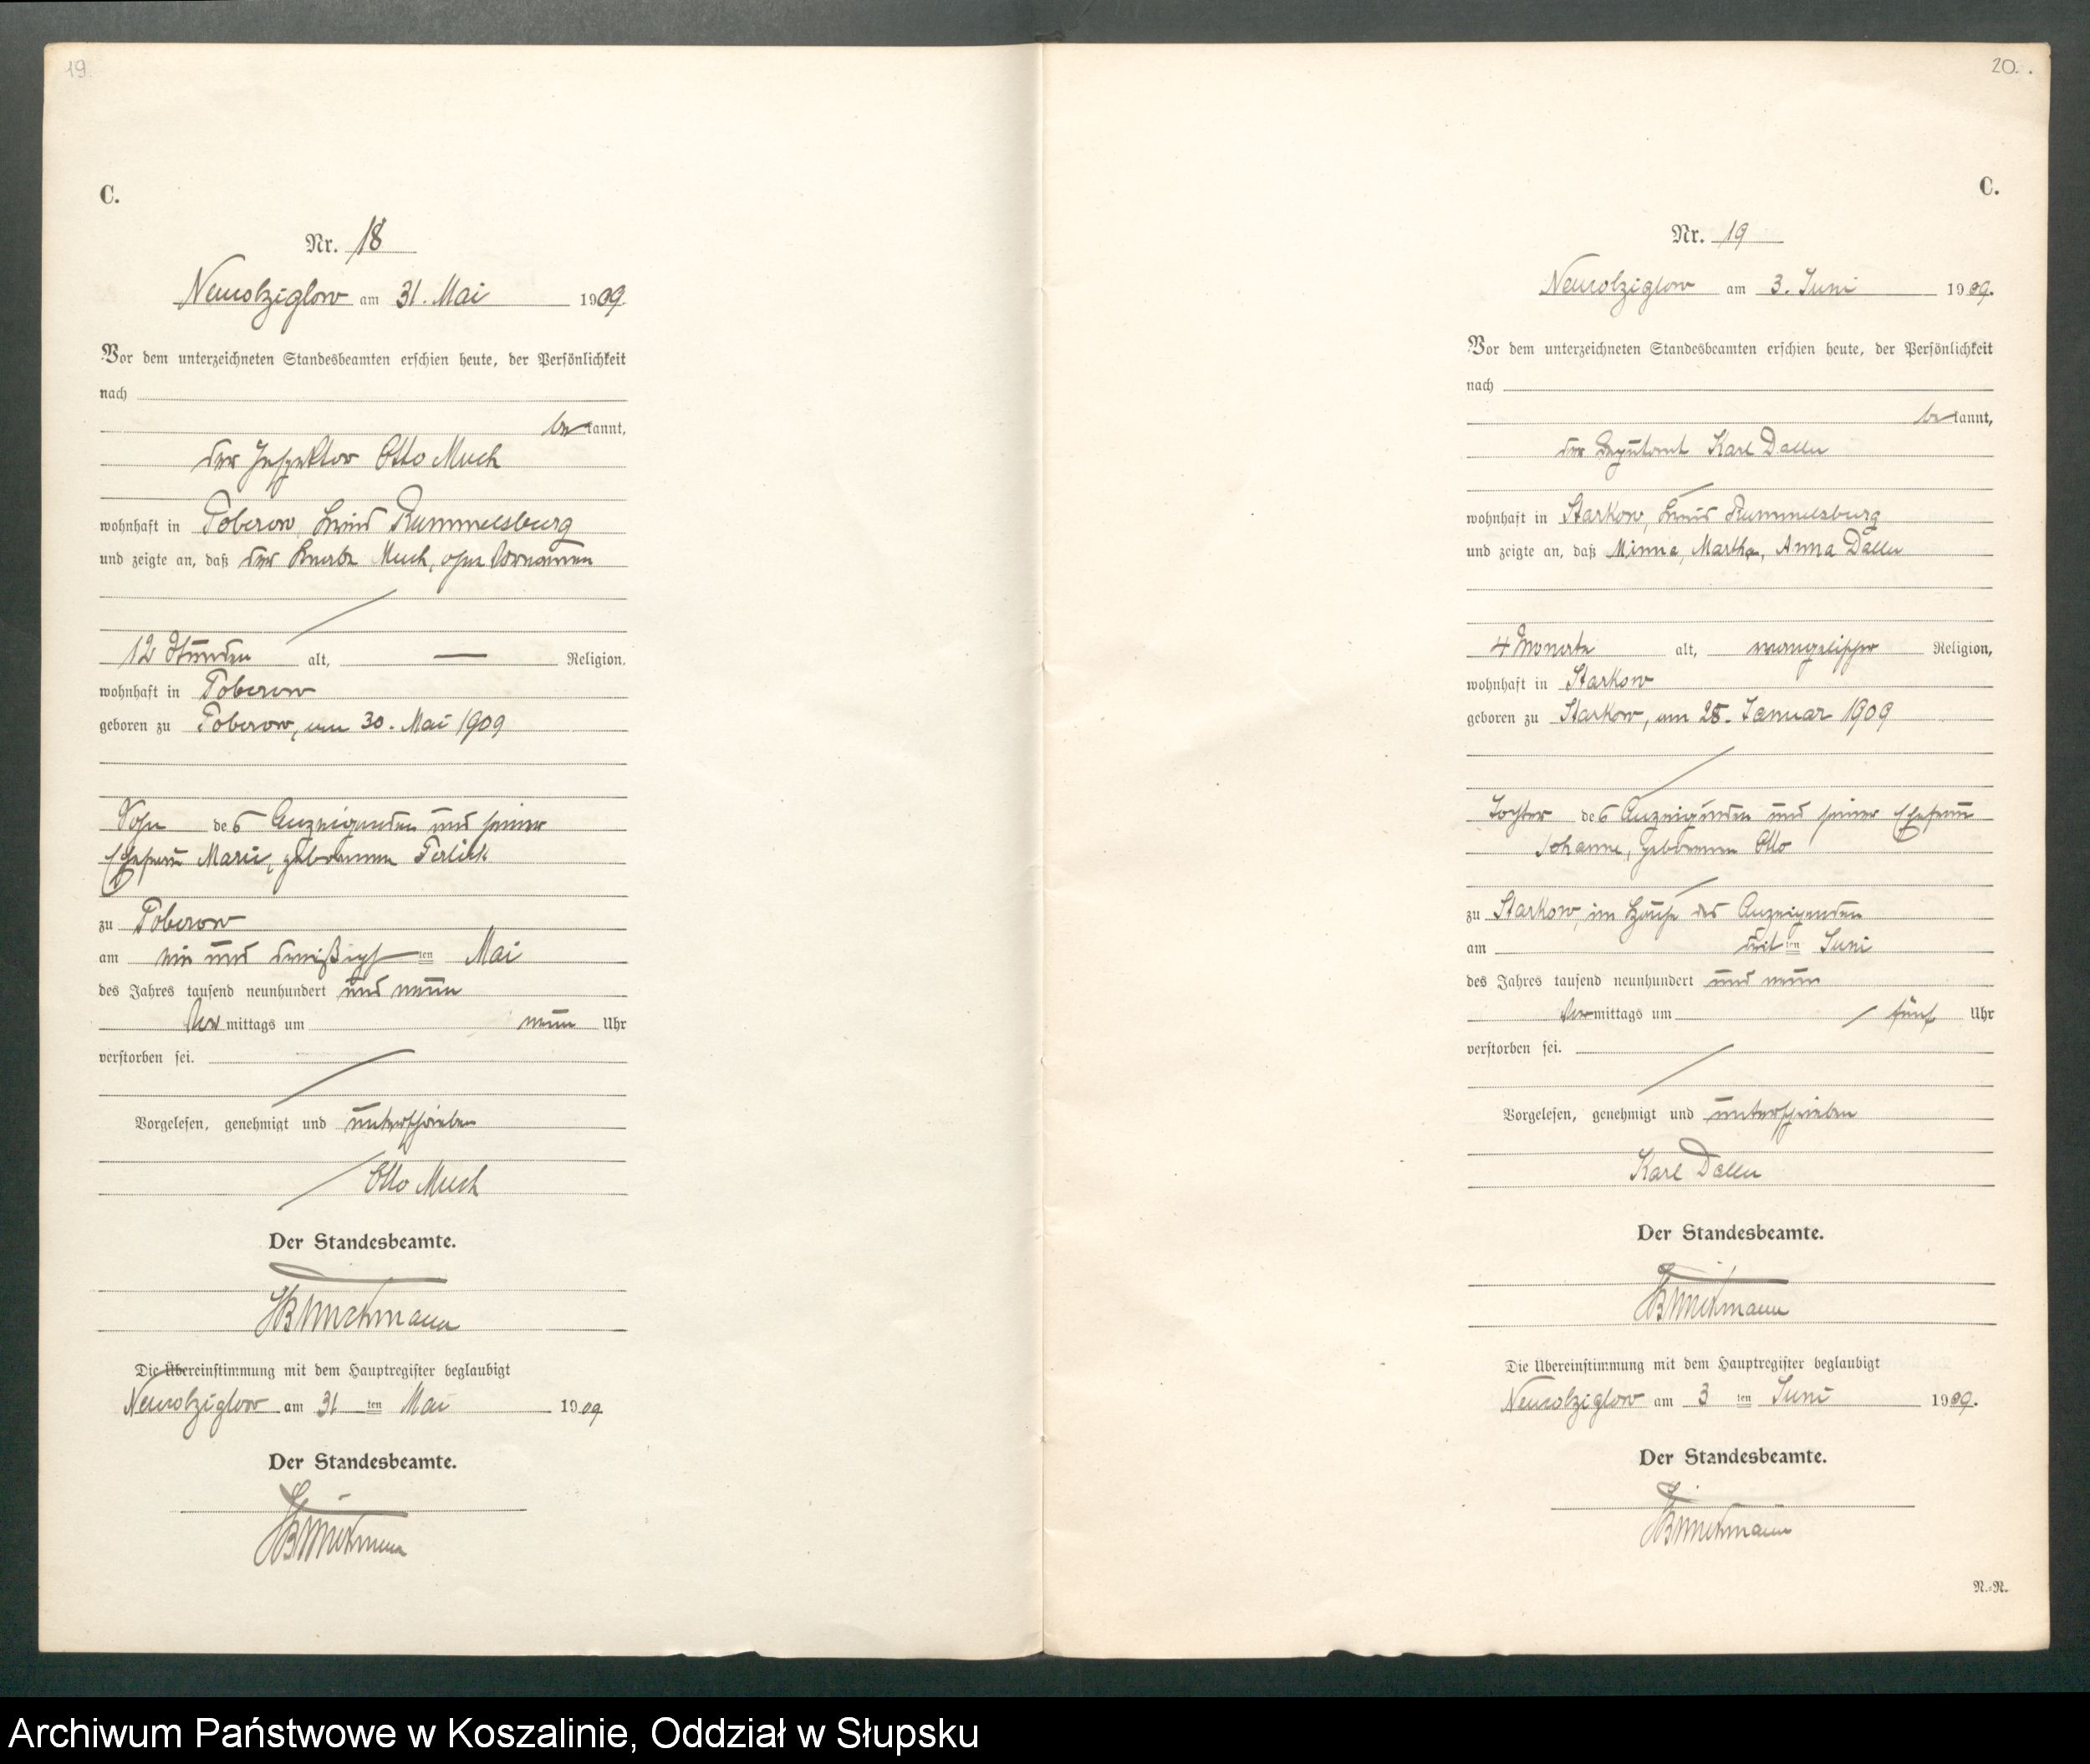 19
C.
Nr. 18
Neukolziglow am 31. Mai 1909.
Vor dem unterzeichneten Standesbeamten erschien heute, der Persönlichkeit
nach
bekannt,
der Inspektor Otto Much
wohnhaft in Poberow, Kreis Rummelsburg
und zeigte an, daß der Knabe Much, ohne Vornamen
12 Stunden alt, — Religion,
wohnhaft in Poberow
geboren zu Poberow, am 30. Mai 1909
Sohn des Anzeigenden und seiner
Ehefrau Marie, geborenen
zu Poberow
am ein und dreißigsten Mai
des Jahres tausend neunhundert und neun
Vormittags um neun Uhr
verstorben sei.
Vorgelesen, genehmigt und unterschrieben
Otto Much
Der Standesbeamte.
Die Übereinstimmung mit dem Hauptregister beglaubigt
Neukolziglow am 31 ten Mai 1909
Der Standesbeamte.
20.
C.
Nr. 19
Neukolziglow am 3. Juni 1909.
Vor dem unterzeichneten Standesbeamten erschien heute, der Persönlichkeit
nach
bekannt,
der Deputant Karl
wohnhaft in Starkow, Kreis Rummelsburg
und zeigte an, daß Minna, Martha, Anna
4 Monate alt, evangelischer Religion,
wohnhaft in Starkow
geboren zu Starkow, am 28. Januar 1909
Tochter des Anzeigenden und seiner Ehefrau
Johanne, geborenen Otto
zu Starkow, im Hause des Anzeigenden
am dritten Juni
des Jahres tausend neunhundert und neun
Vormittags um fünf Uhr
verstorben sei.
Vorgelesen, genehmigt und unterschrieben
Karl
Der Standesbeamte.
Die Übereinstimmung mit dem Hauptregister beglaubigt
Neukolziglow am 3 ten Juni 1909.
Der Standesbeamte.
N.-R.
Archiwum Państwowe w Koszalinie, Oddział w Słupsku